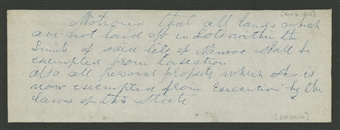 [Nov 9 1841]
Motioned that all lands which
are not laid off in Lots within the
limits of said city of Nauvoo shall be
exempted from taxation
also all personal property which is
now exempted from execution by the
laws of this State